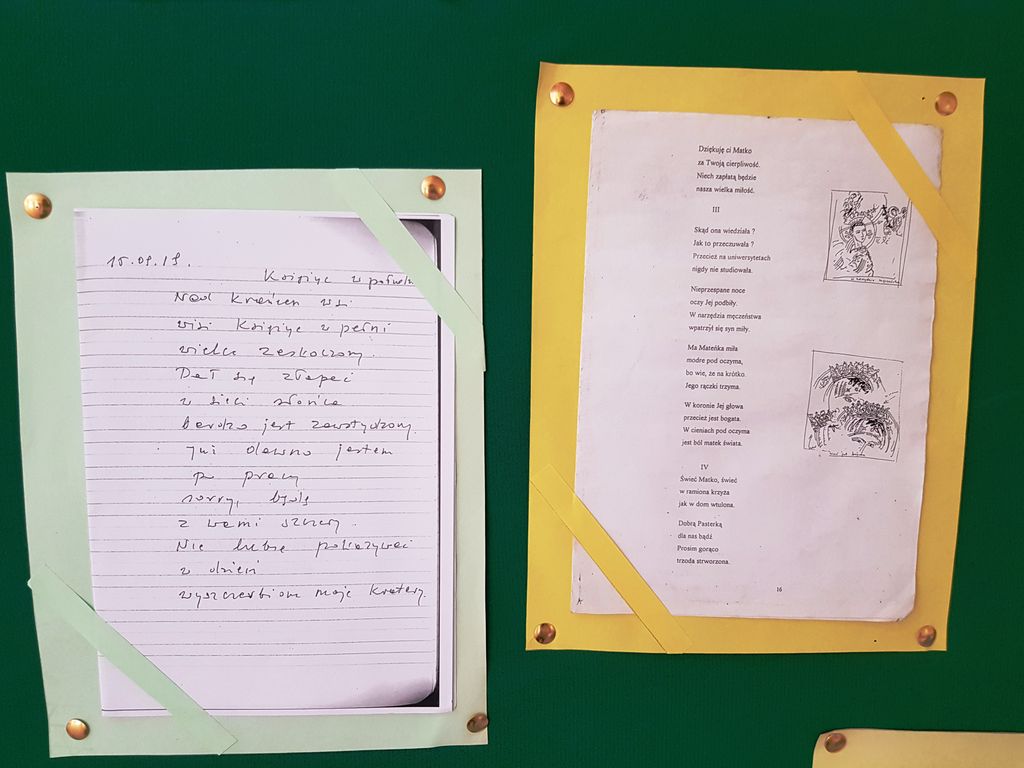 15.09.19.
Księżyc w południe
Nad krańcem wsi
wisi Księżyc w pełni
wielce zaskoczony.
Dał się złapać
w sieci słońca
bardzo jest zawstydzony.
już dawno jestem
po pracy
sorry, będę
z wami szczery.
Nie lubię pokazywać
w dzień
wyszczerbione moje kratery.
Dziękuję ci Matko
za Twoją cierpliwość.
Niech zapłatą będzie
nasza wielka miłość.
III
Skąd ona wiedziała ?
Jak to przeczuwała ?
Przecież na uniwersytetach
nigdy nie studiowała.
Nieprzespane noce
oczy Jej podbiły.
W narzędzia męczeństwa
wpatrzył się syn miły.
Ma Mateńka miła
modre pod oczyma,
bo wie, że na krótko.
Jego rączki trzyma.
W koronie Jej głowa
przecież jest bogata.
W cieniach pod oczyma
jest ból matek świata.
IV
Świeć Matko, świeć
w ramiona krzyża
jak w dom wtulona.
Dobrą Pasterką
dla nas bądź
Prosim gorąco
trzoda strworzona.
16